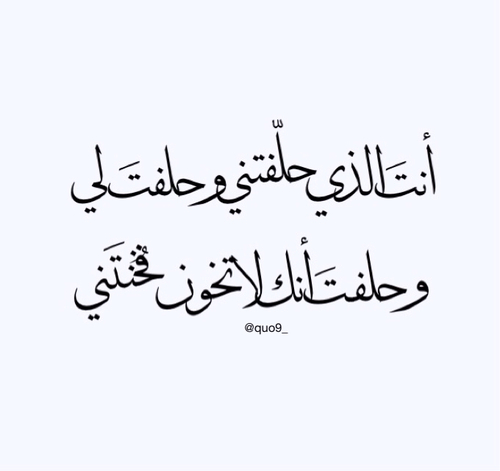 أنتَ الذي حلّفتني وحلفتَ لي
وحلفتَ أنك لا تخون فخُنتَني
@quo9_